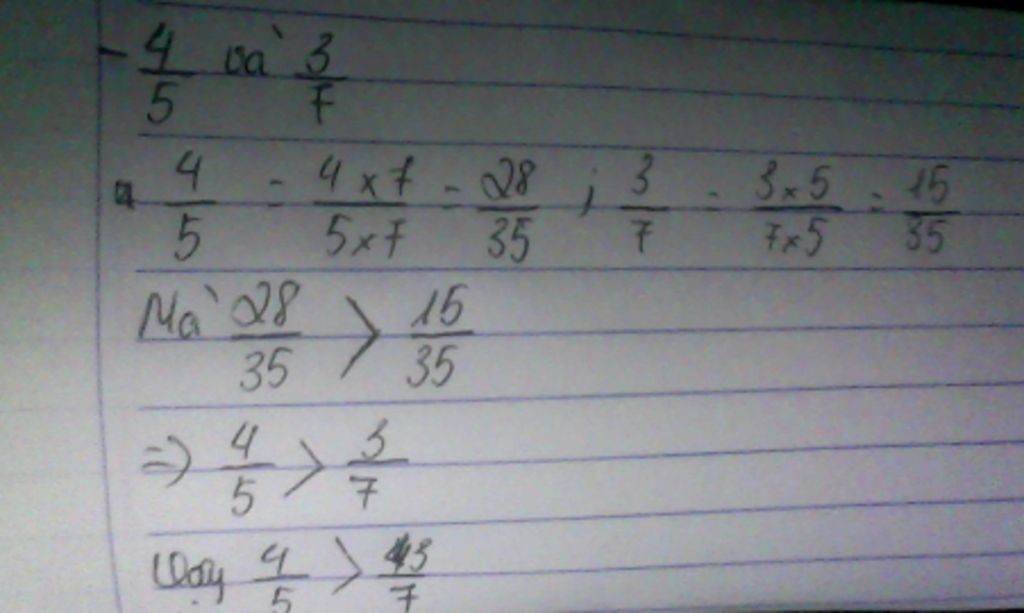 - 4/5 và 3/7
4/5 = 4 x 7 / 5 x 7 = 28/35 ; 3/7 = 3 x 5 / 7 x 5 = 15/35
Mà 28/35 > 15/35
=> 4/5 > 3/7
Vậy 4/5 > 3/7